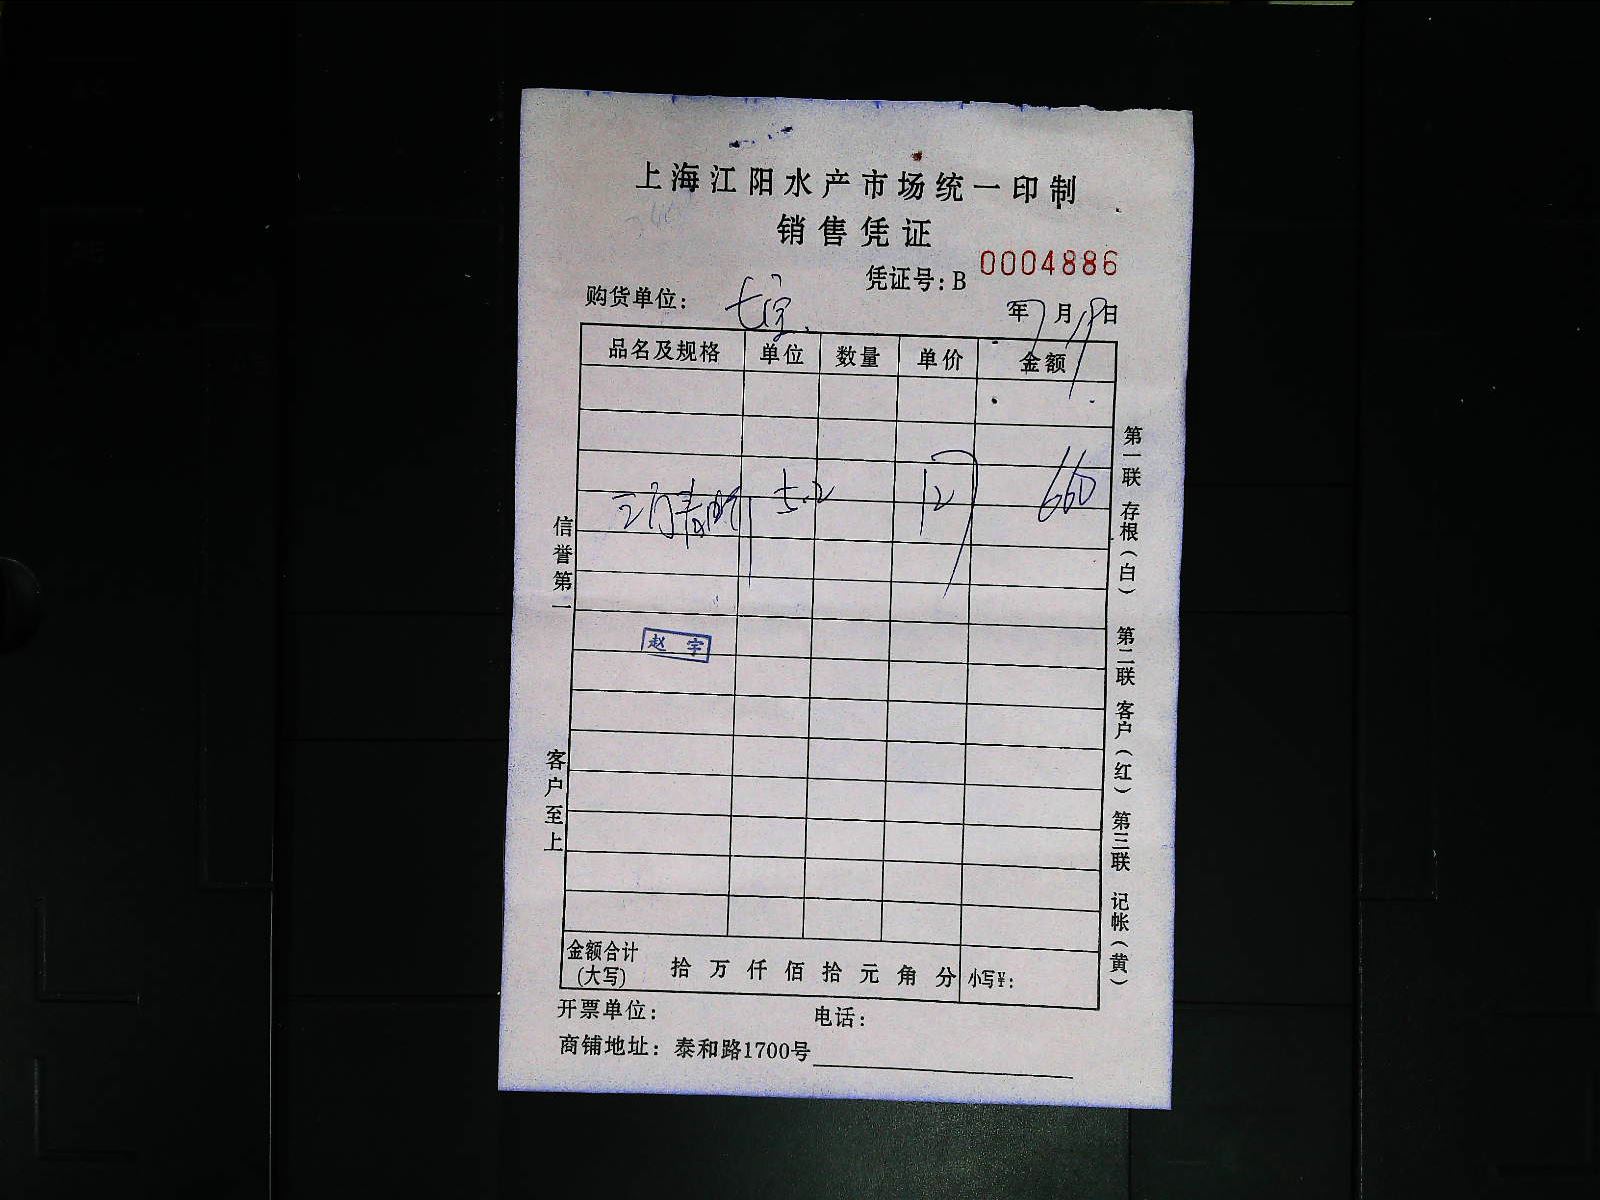 上海江阳水产市场统一印制
销售凭证
凭证号：B 0004886
购货单位： 七宝 年 7 月 19 日
品名及规格 单位 数量 单价 金额
三门青 5.2 127 660
赵宇
金额合计(大写) 拾 万 仟 佰 拾 元 角 分 小写¥：
开票单位： 电话：
商铺地址：泰和路1700号
信誉第一 客户至上
第一联 存根（白） 第二联 客户（红） 第三联 记帐（黄）